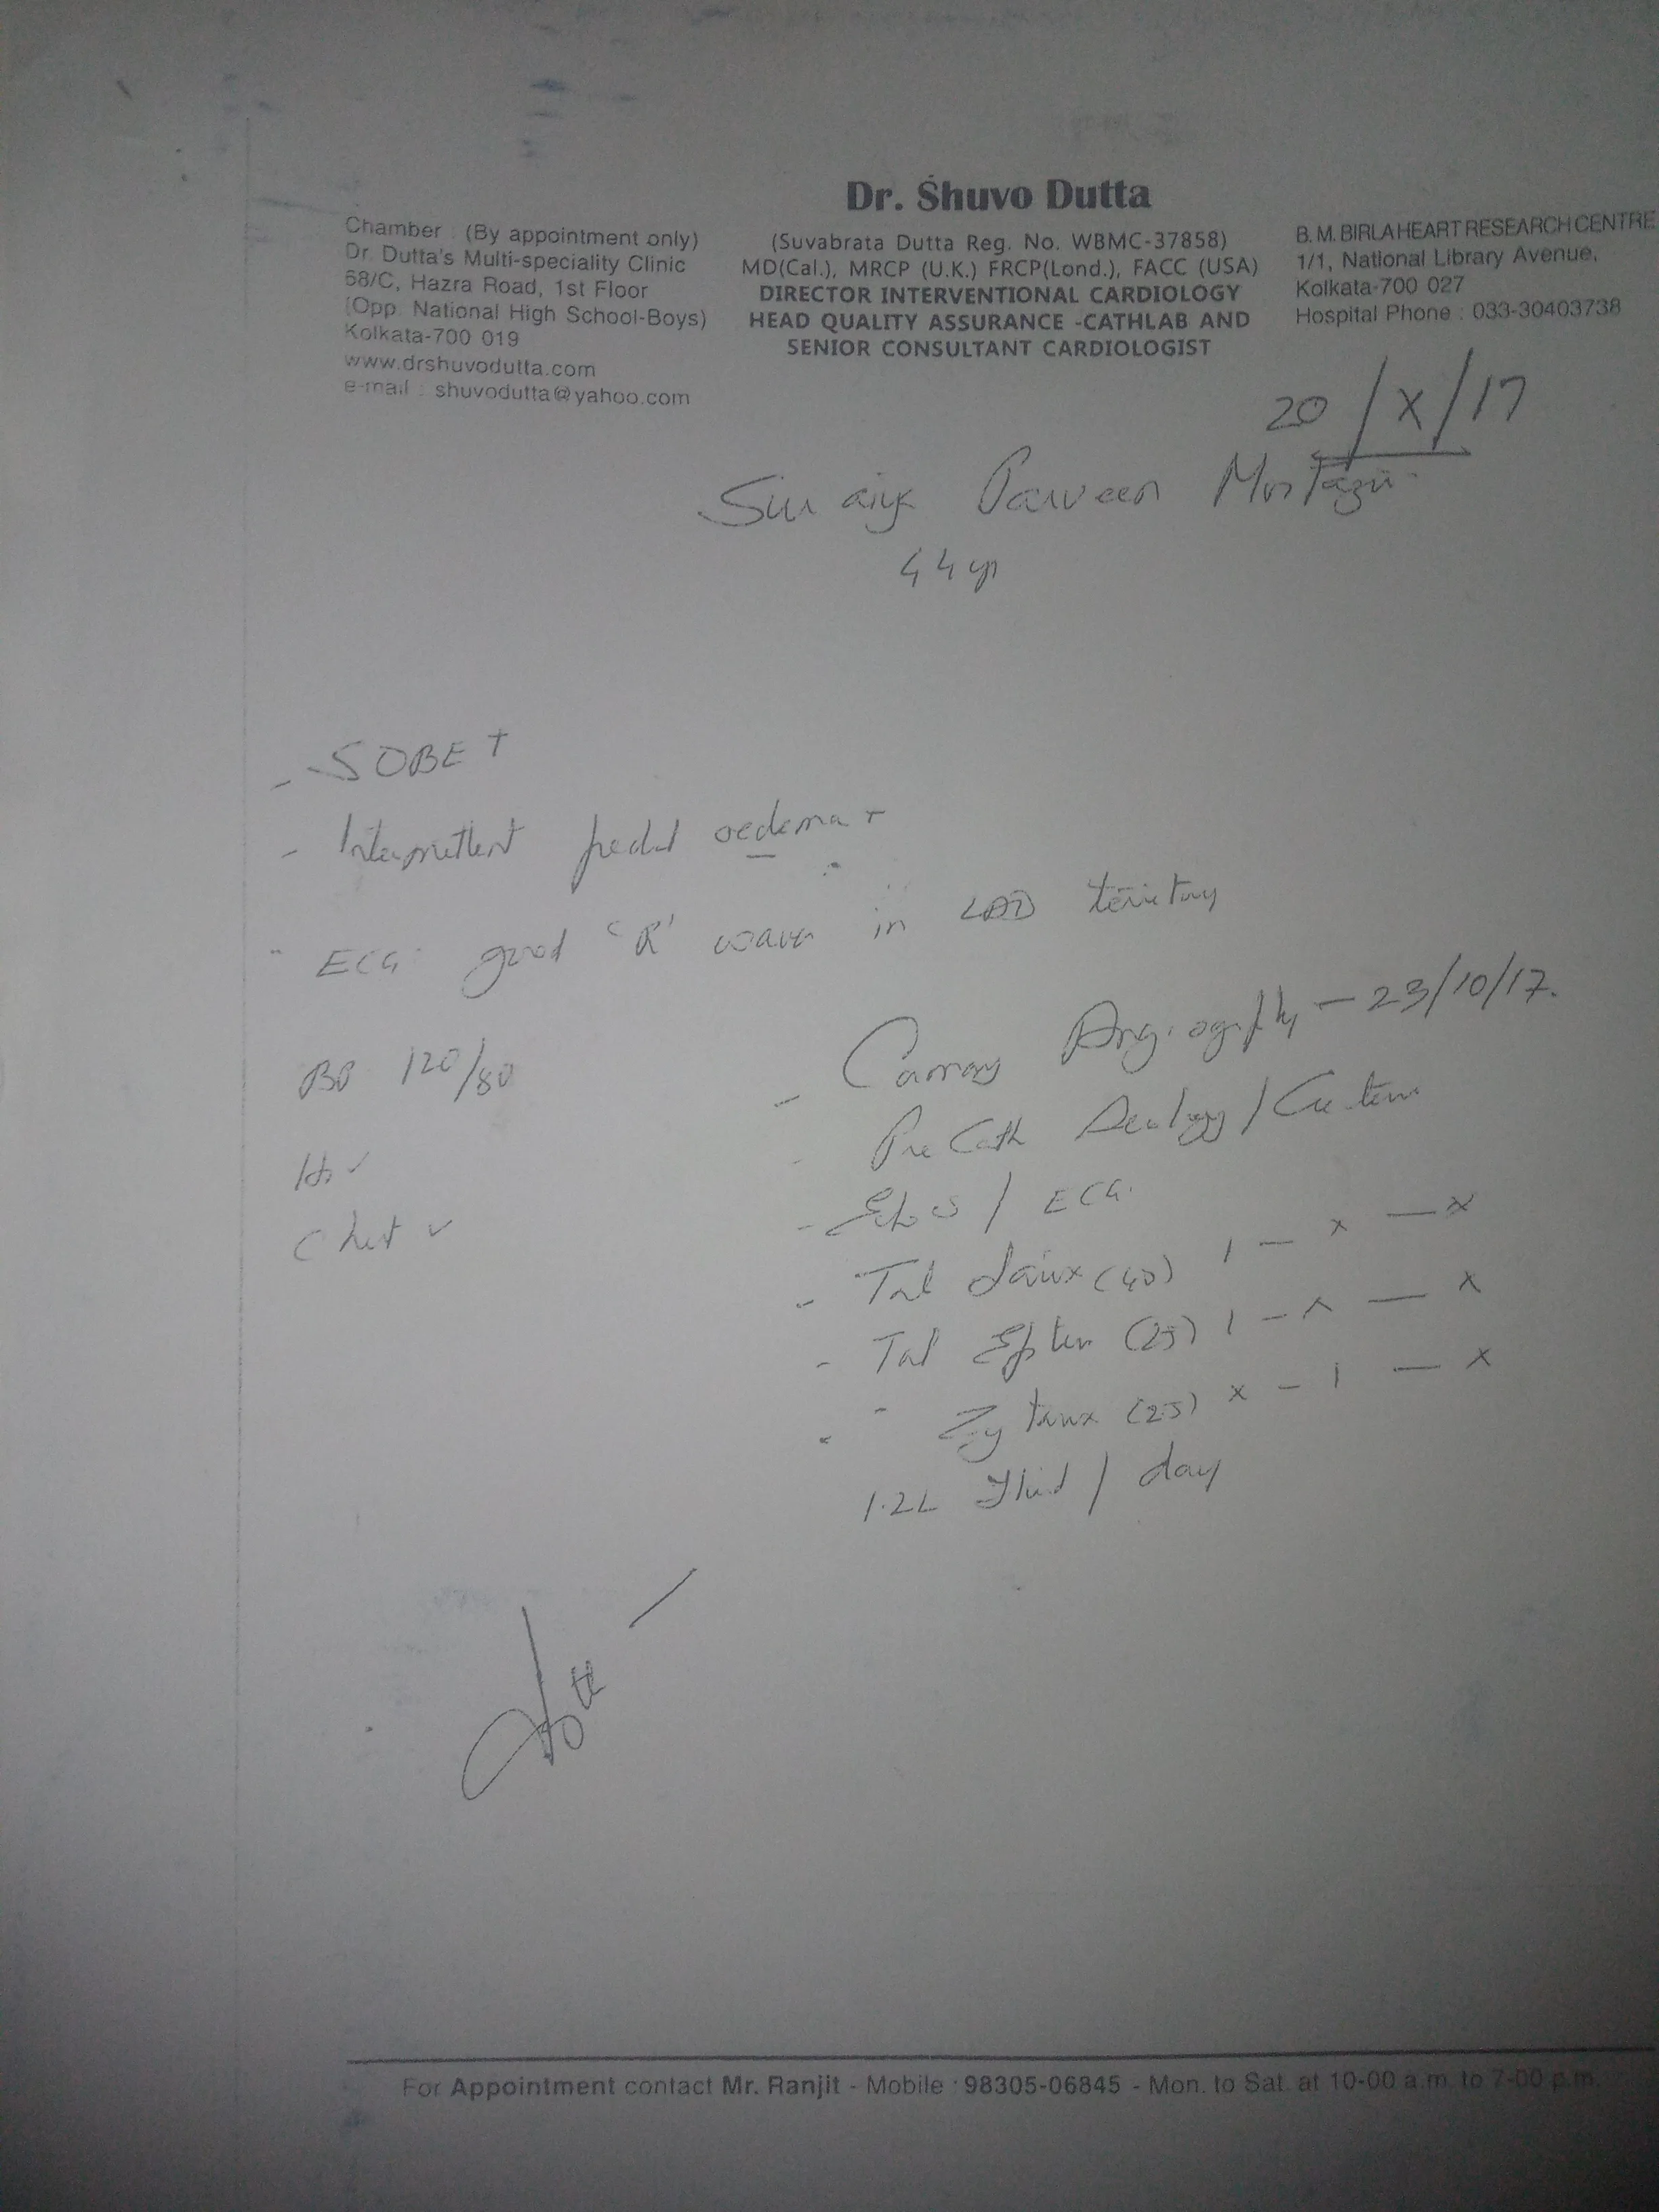 Dr. Shuvo Dutta
Chamber : (By appointment only)
Dr. Dutta's Multi-speciality Clinic
68/C, Hazra Road, 1st Floor
(Opp. National High School-Boys)
Kolkata-700 019
www.drshuvodutta.com
e-mail : shuvodutta@yahoo.com
(Suvabrata Dutta Reg. No. WBMC-37858)
MD(Cal.), MRCP (U.K.) FRCP(Lond.), FACC (USA)
DIRECTOR INTERVENTIONAL CARDIOLOGY
HEAD QUALITY ASSURANCE -CATHLAB AND
SENIOR CONSULTANT CARDIOLOGIST
B.M. BIRLA HEART RESEARCH CENTRE
1/1, National Library Avenue,
Kolkata-700 027
Hospital Phone : 033-30403738
20/X/17
Parveen
44 yr
- SOBE +
- Intermittent pedal oedema +
- ECG: good 'R' waves in LAD territory
BP 120/80
Hs ✓
Chest ✓
- Coronary Angiography - 23/10/17.
- Pre Cath
- Echo / ECG.
- Tab (40) 1 - x - x
- Tab (25) 1 - x - x
- " (25) x - 1 - x
1.2L Fluid / day
For Appointment contact Mr. Ranjit - Mobile : 98305-06845 - Mon. to Sat. at 10-00 a.m. to 7-00 p.m.